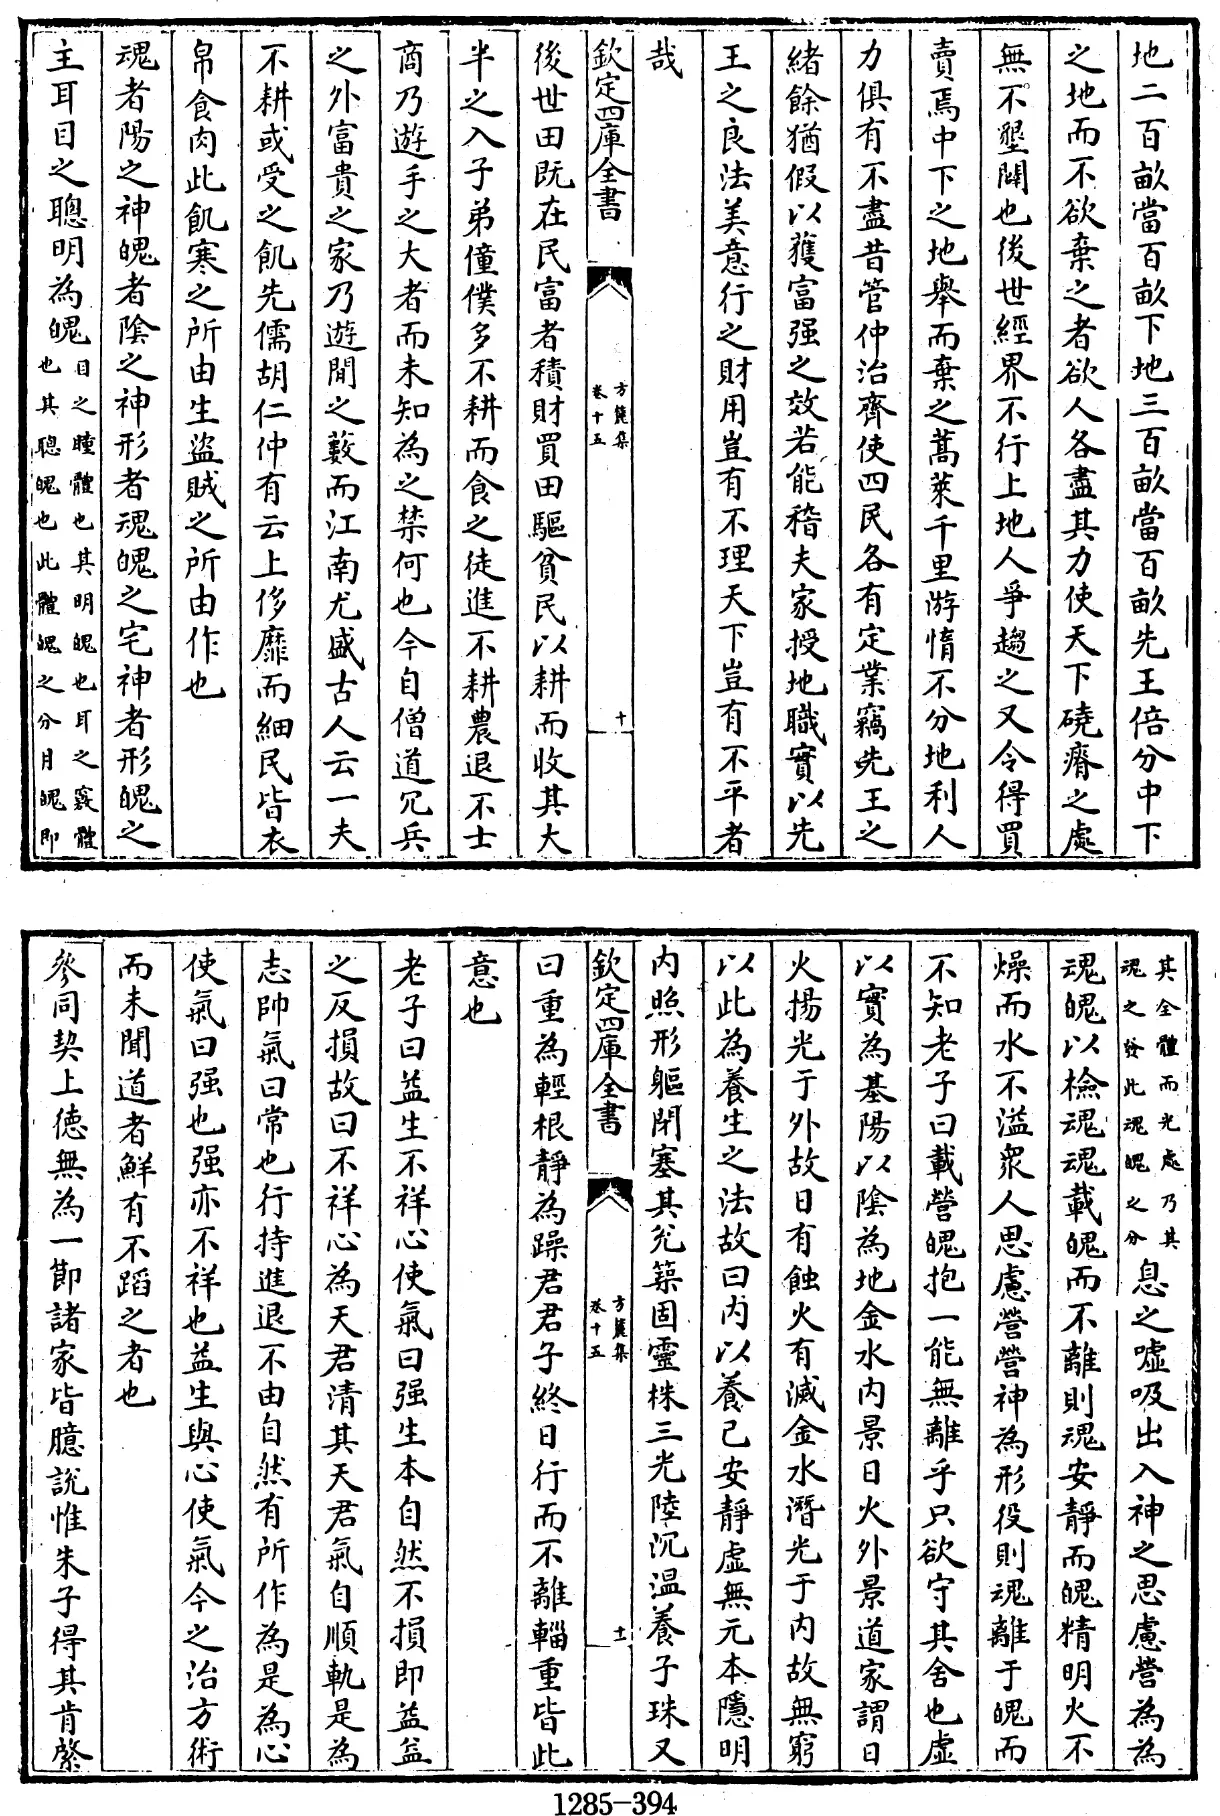 地二百畝當百畝下地三百畝當百畝先王倍分中下
之地而不欲棄之者欲人各盡其力使天下磽瘠之處
無不墾闢也後世經界不行上地人爭趨之又令得買
賣焉中下之地舉而棄之蒿萊千里游惰不分地利人
力俱有不盡昔管仲治齊使四民各有定業竊先王之
緒餘猶假以獲富强之效若能稽夫家授地職實以先
王之良法美意行之財用豈有不理天下豈有不平者
哉
欽定四庫全書 方麓集 卷十五 十
後世田既在民富者積財買田驅貧民以耕而收其大
半之入子弟僮僕多不耕而食之徒進不耕農退不士
商乃遊手之大者而未知為之禁何也今自僧道冗兵
之外富貴之家乃遊閒之藪而江南尤盛古人云一夫
不耕或受之飢先儒胡仁仲有云上侈靡而細民皆衣
帛食肉此飢寒之所由生盜賊之所由作也
魂者陽之神魄者陰之神形者魂魄之宅神者形魄之
主耳目之聰明為魄目之瞳體也其明魄也耳之竅體也其聰魄也此體魄之分月魄即
其全體而光處乃其魂之發此魂魄之分息之噓吸出入神之思慮營為為
魂魄以檢魂魂載魄而不離則魂安靜而魄精明火不
燥而水不溢衆人思慮營營神為形役則魂離于魄而
不知老子曰載營魄抱一能無離乎只欲守其舍也虛
以實為基陽以陰為地金水内景日火外景道家謂日
火揚光于外故日有蝕火有滅金水潛光于内故無窮
以此為養生之法故曰内以養己安靜虛無元本隱明
内照形軀閉塞其兌築固靈株三光陸沉温養子珠又
欽定四庫全書 方麓集 卷十五 十一
曰重為輕根靜為躁君君子終日行而不離輜重皆此
意也
老子曰益生不祥心使氣曰强生本自然不損即益益
之反損故曰不祥心為天君清其天君氣自順軌是為
志帥氣曰常也行持進退不由自然有所作為是為心
使氣曰强也强亦不祥也益生與心使氣今之治方術
而未聞道者鮮有不蹈之者也
參同契上德無為一節諸家皆臆說惟朱子得其肯綮
1285-394